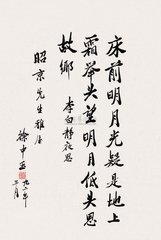 床前明月光疑是地上
霜举头望明月低头思
故乡 李白静夜思
昭京先生雅属
徐中玉